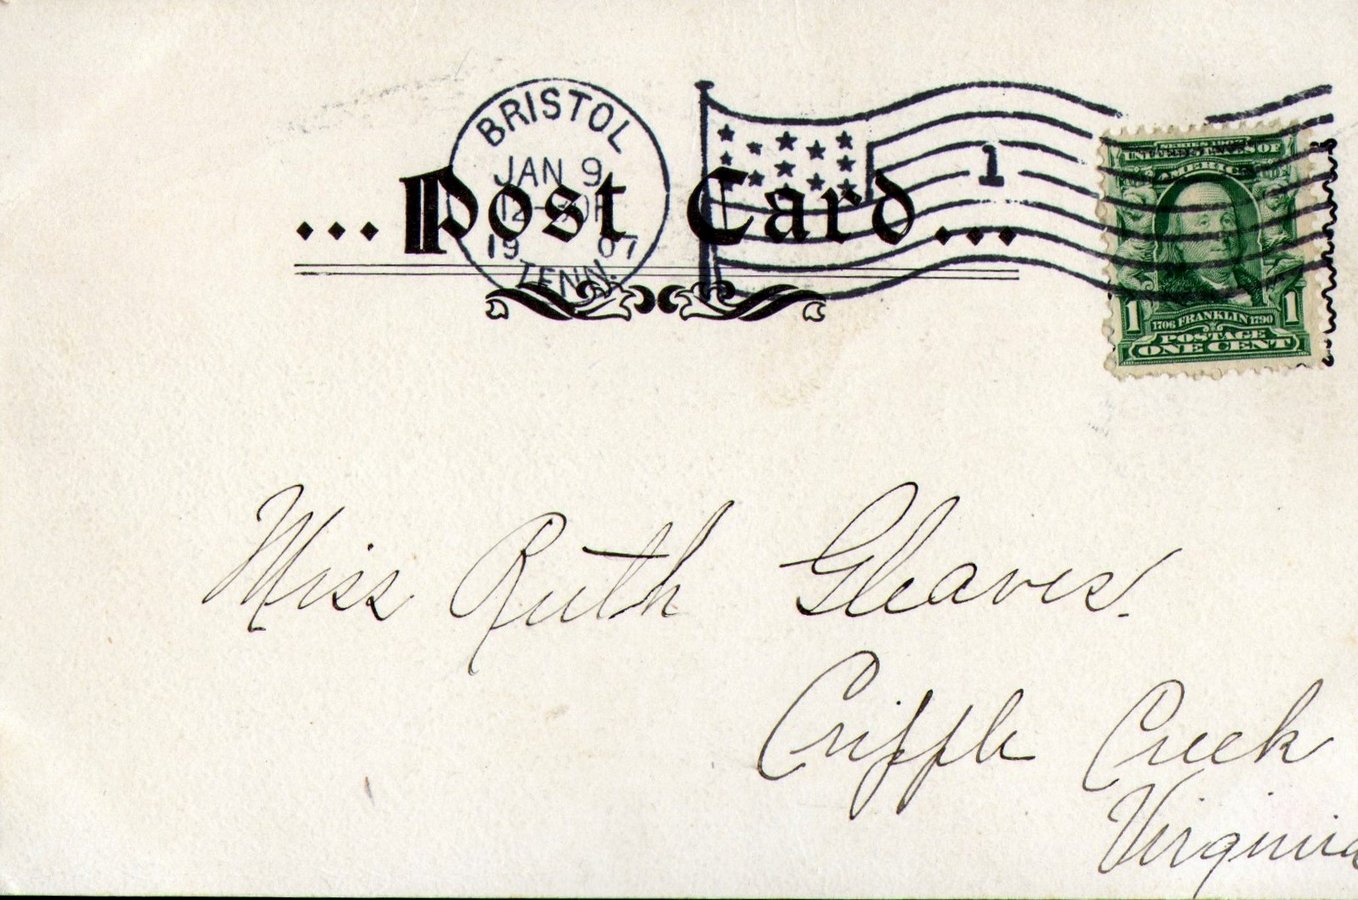 BRISTOL
JAN 9
19 07
TENN.
1
...Post Card...
UNITED STATES OF
AMERICA
1 1
1706 FRANKLIN 1790
POSTAGE
ONE CENT
Miss Ruth Gleaves.
Cripple Creek
Virginia